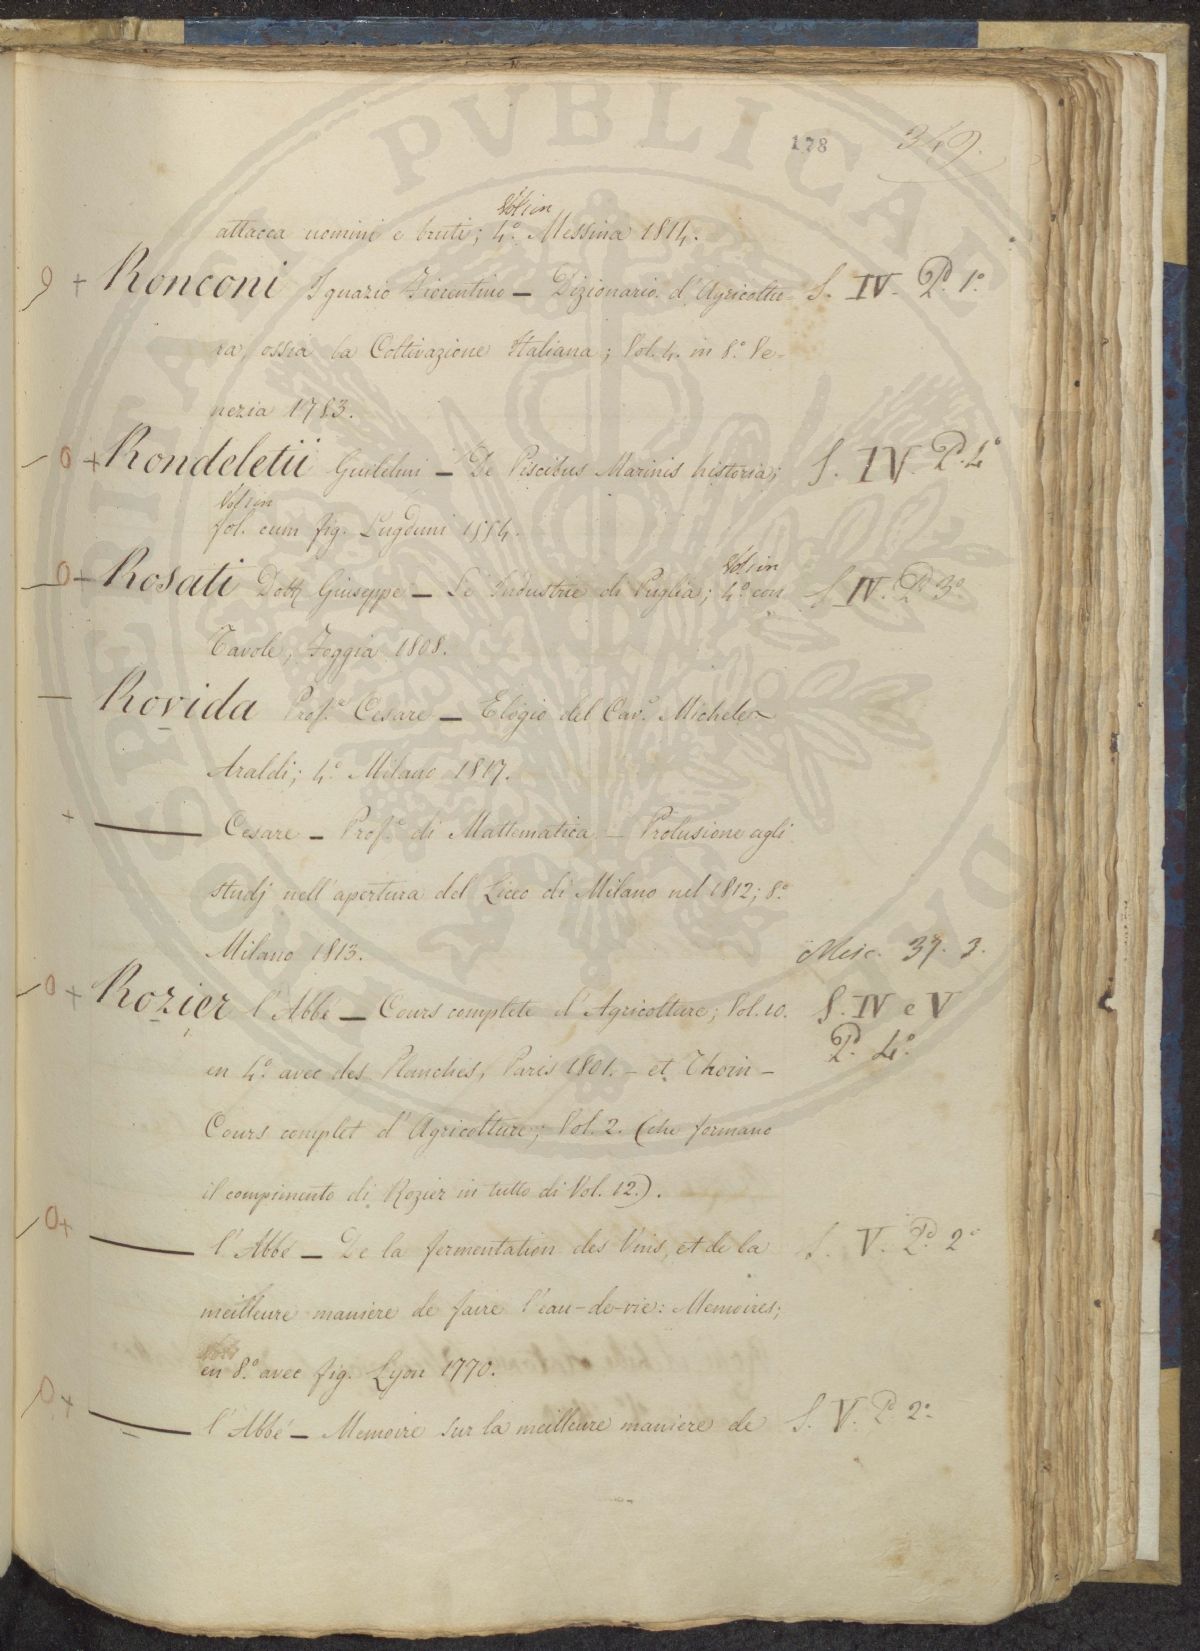 178 349.
Vol: in
attacca uomini e bruti; 4.° Messina 1814.
9 + Ronconi Ignazio Fiorentino — Dizionario d'Agricoltu- S. IV. P.° 1.°
ra, ossia la Coltivazione Italiana; Vol. 4. in 8.° Ve-
nezia 1783.
0 + Rondeletii Guilelmi — De Piscibus Marinis historia; S. IV. P. 4°
Vol: in
fol. cum fig. Lugduni 1554.
Vol: in
0 — Rosati Dott. Giuseppe — Le Industrie di Puglia; 4.° con S. IV. P.° 3°
Tavole; Foggia 1808.
— Rovida Prof.e Cesare — Elogio del Cav.e Michele
Araldi; 4.° Milano 1817.
+ —— Cesare — Prof.e di Mattematica — Prolusione agli
studj nell'apertura del Liceo di Milano nel 1812; 8.°
Milano 1813. Misc. 37. 3.
0 + Rozier l'Abbé — Cours complete d'Agricolture; Vol. 10. S. IV e V
P. 4.°
en 4.° avec des Planches, Paris 1801. — et Thoin —
Cours complet d'Agricolture; Vol. 2. (che formano
il compimento di Rozier in tutto di Vol. 12.).
0 + —— l'Abbé — De la fermentation des Vins, et de la S. V. P.° 2°
meilleure maniere de faire l'eau-de-vie: Memoires;
en 8.° avec fig. Lyon 1770.
0 + —— l'Abbé — Memoire sur la meilleure maniere de S. V. P. 2.°
PUBLICAE